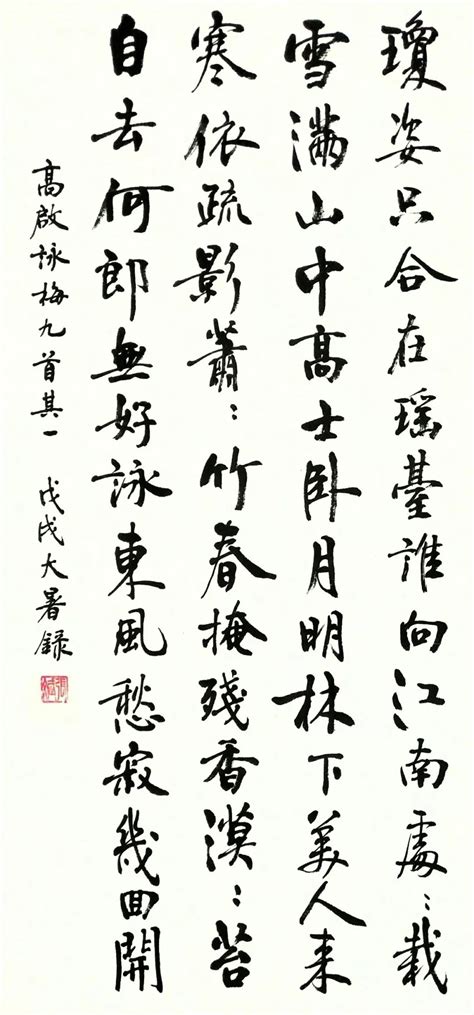 瓊姿只合在瑶臺誰向江南處：栽
雪滿山中高士卧月明林下美人来
寒依疏影蕭：竹春掩殘香漠：苔
自去何郎無好詠東風愁寂幾回開
高啟詠梅九首其一 戊戌大暑録